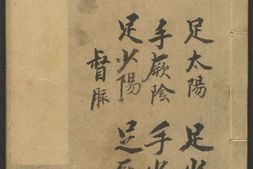 足太陽 足少
手厥陰 手少
足少陽 足
督脉